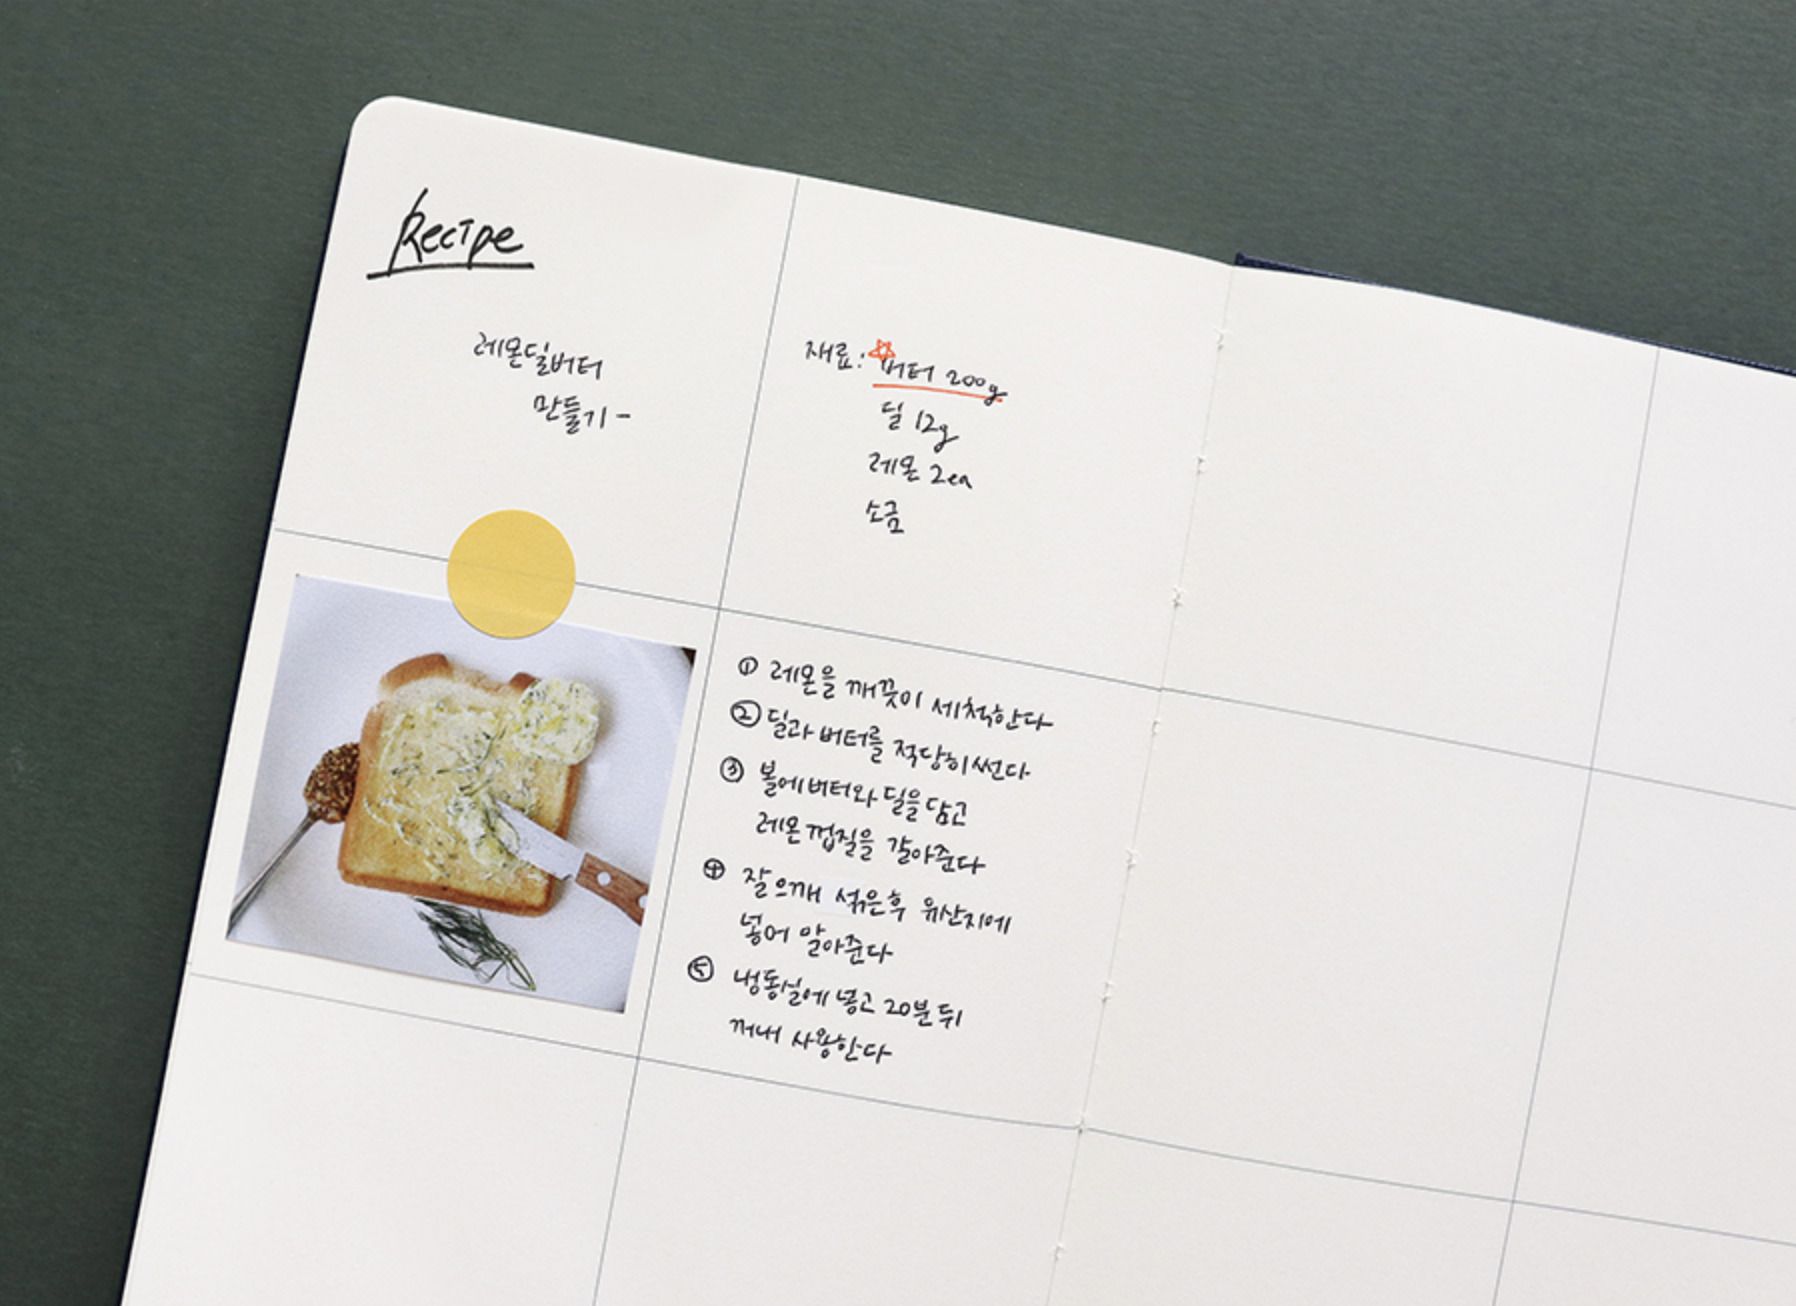 Recipe
레몬딜버터
만들기-
재료: ☆버터 200g
딜 12g
레몬 2ea
소금
① 레몬을 깨끗이 세척한다
② 딜과 버터를 적당히 썬다
③ 볼에 버터와 딜을 담고
레몬 껍질을 갈아준다
④ 잘 으깨 섞은 후 유산지에
넣어 말아준다
⑤ 냉동실에 넣고 20분 뒤
꺼내 사용한다